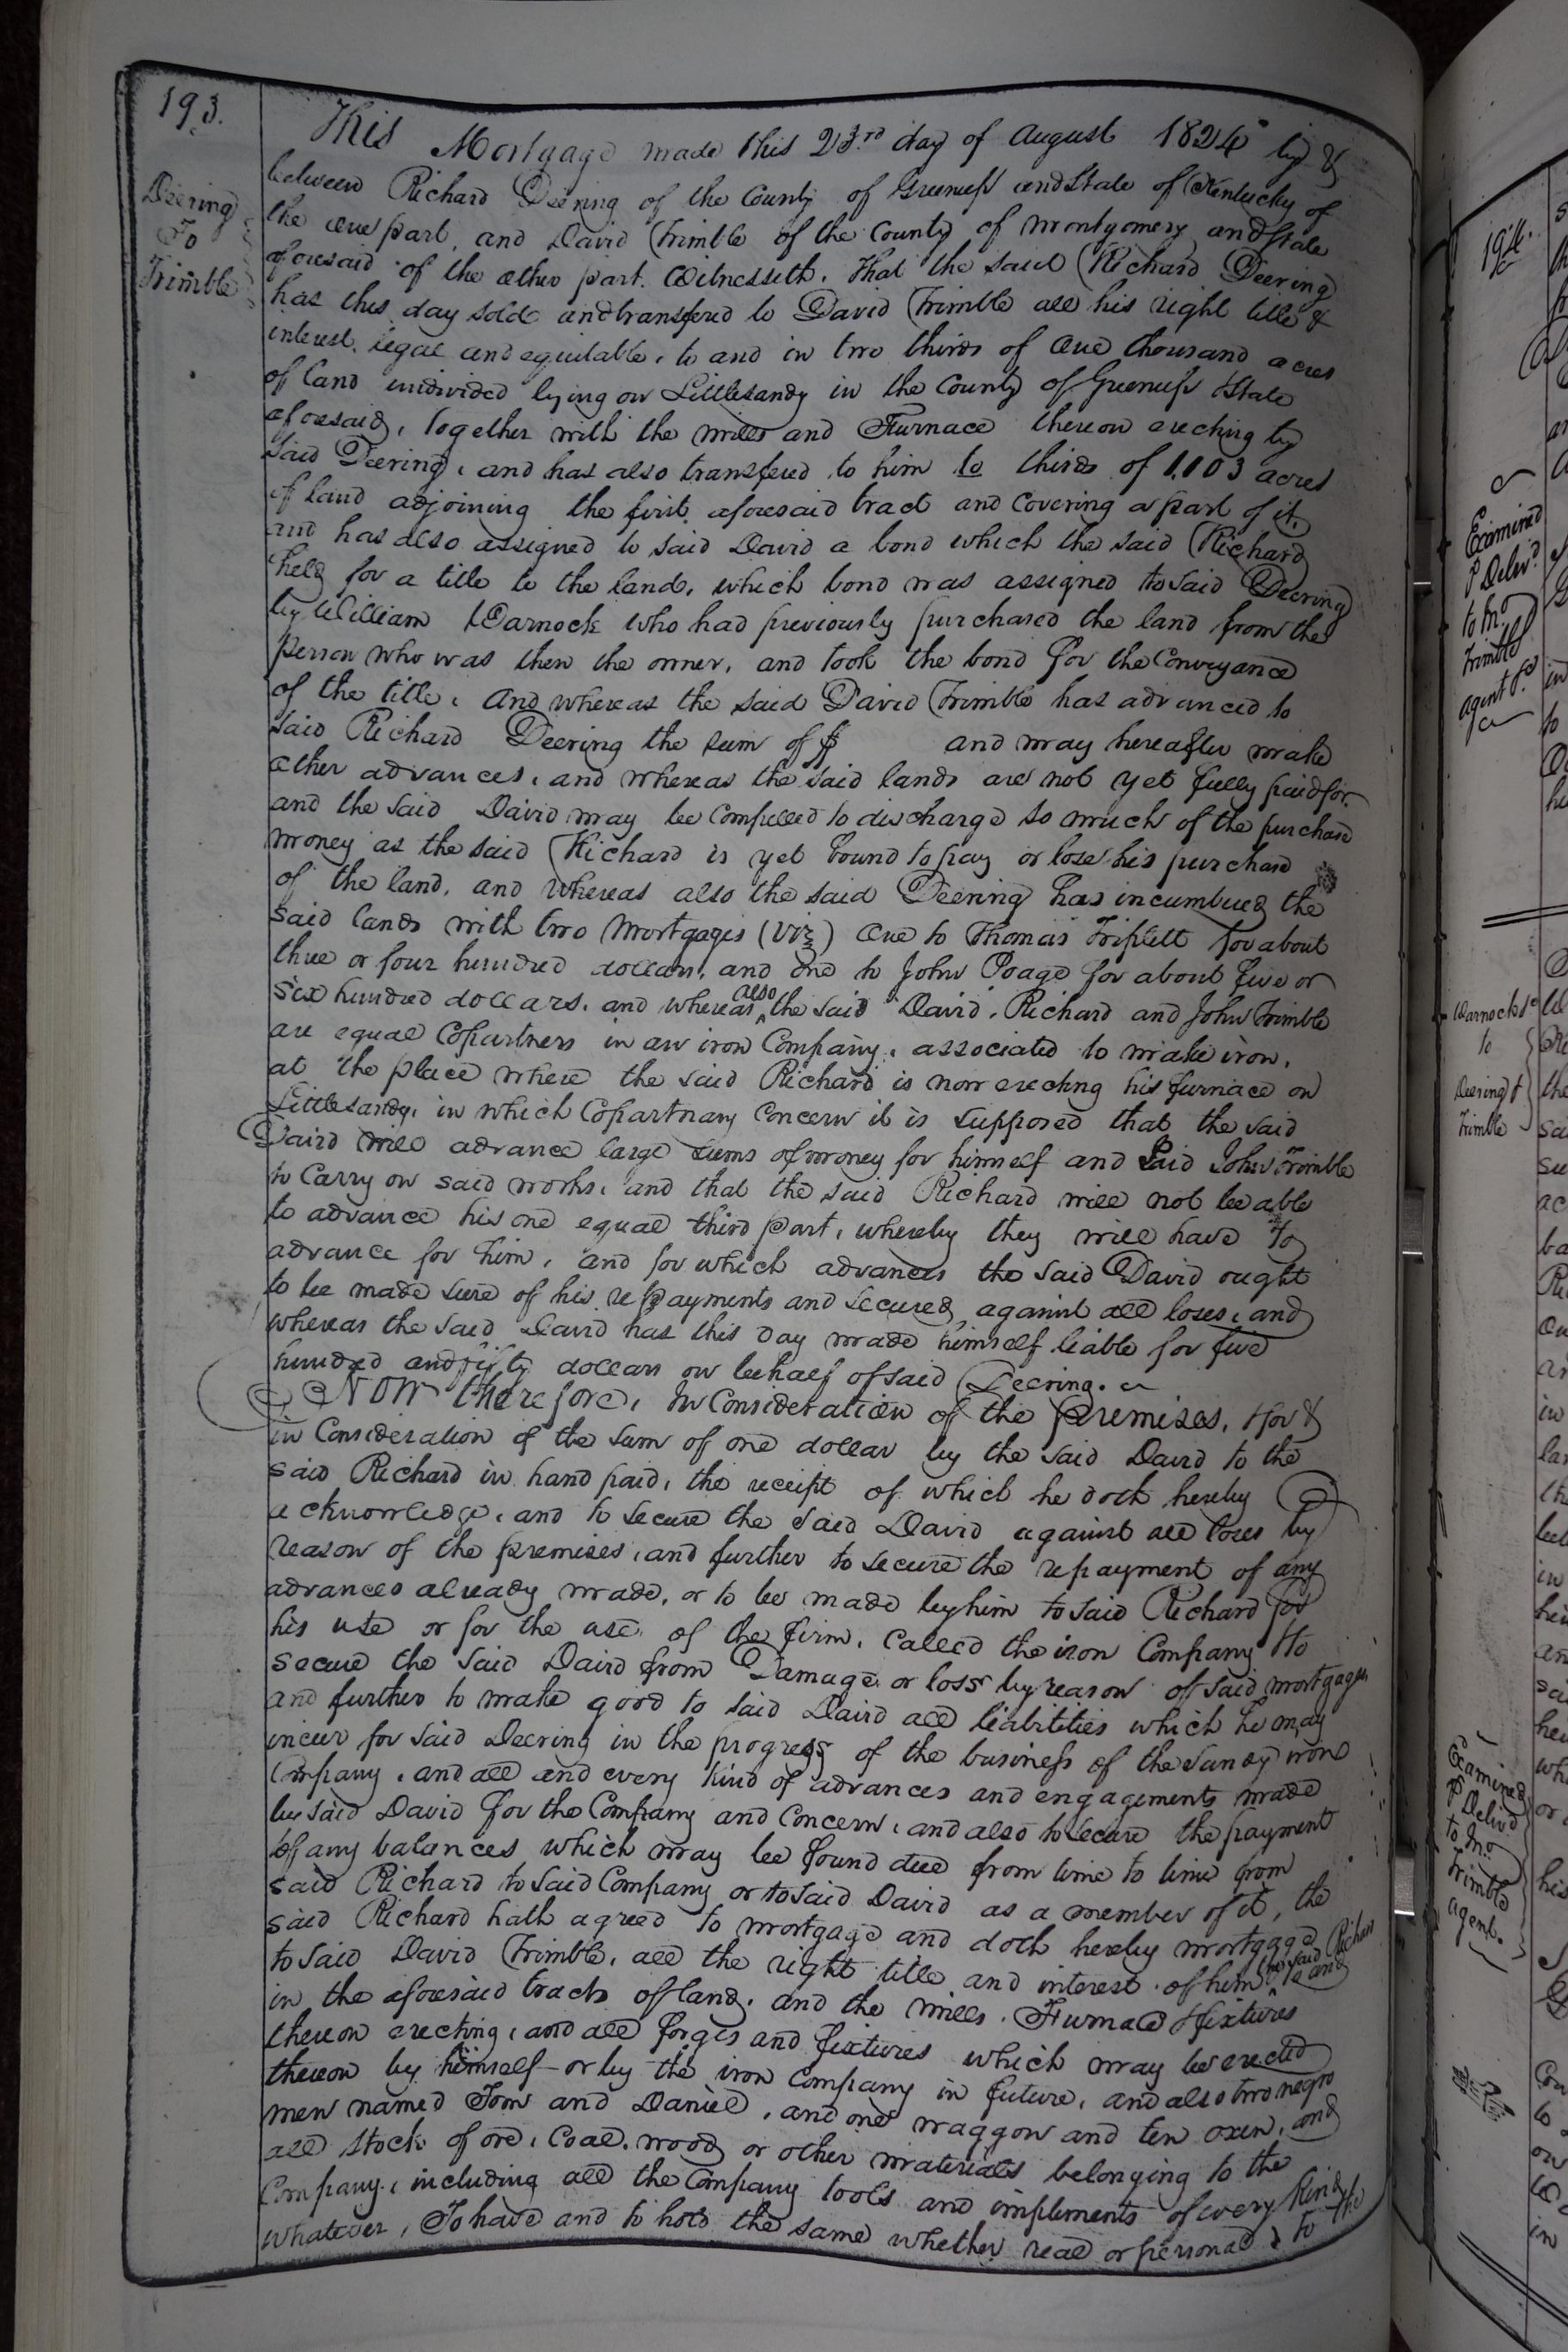 193.
Deering
To
Trimble
This Mortgage made this 23.rd day of August 1824 by &
between Richard Deering of the County of Greenup and State of Kentucky of
the one part, and David Trimble of the County of Montgomery and State
aforesaid of the other part. Witnesseth. That the said Richard Deering
has this day sold and transfered to David Trimble all his right title &
interest. legal and equitable, to and in two thirds of one thousand acres
of land undivided lying on Littlesandy in the County of Greenup & State
aforesaid, together with the mills and Furnace thereon erecting by
said Deering, and has also transfered to him to thirds of 1,103 acres
of land adjoining the first aforesaid tract and covering a part of it,
and has also assigned to said David a bond which the said Richard
held for a title to the land, which bond was assigned to said Deering
by William Warnock who had previously purchased the land from the
person who was then the owner, and took the bond for the Conveyance
of the title, And whereas the said David Trimble has advanced to
said Richard Deering the sum of $ and may hereafter make
other advances, and whereas the said lands are not yet fully paid for.
and the said David may be compelled to discharge so much of the purchase
money as the said Richard is yet bound to pay or lose his purchase
of the land, and whereas also the said Deering has incumbured the
said lands with two Mortgages (viz) One to Thomas Triplett for about
three or four hundred dollars, and one to John Poage for about five or
six hundred dollars. and whereas also the said David, Richard and John Trimble
are equal Copartners in an iron Company, associated to make iron,
at the place where the said Richard is now erecting his furnace on
Littlesandy, in which Copartnary Concern it is supposed that the said
David will advance large sums of money for himself and said John Trimble
to Carry on said works, and that the said Richard will not be able
to advance his one equal third part, whereby they will have to
advance for him, and for which advances the said David ought
to be made sure of his repayments and secured against all loses, and
whereas the said David has this day made himself liable for five
hundred and fifty dollars on behalf of said Deering.
Now therefore, In Consideration of the premises, & for &
in Consideration of the sum of one dollar by the said David to the
said Richard in hand paid, the receipt of which he doth hereby
acknowledge, and to secure the said David against all loses by
reason of the premises, and further to secure the repayment of any
advances already made, or to be made by him to said Richard for
his use or for the use of the firm, called the iron Company & to
secure the said David from Damage or loss by reason of said mortgages
and further to make good to said David all liabilities which he may
incur for said Deering in the progress of the business of the Sandy iron
Company, and all and every kind of advances and engagements made
by said David for the Company and Concern, and also to secure the payment
of any balances which may be found due from time to time from
said Richard to said Company or to said David as a member of it, the
said Richard hath agreed to mortgage and doth hereby mortgage
to said David Trimble, all the right title and interest of him the said Richard
in the aforesaid tracts of land, and the mills, Furnace & fixtures
thereon erecting, and all forges and fixtures which may be erected
thereon by himself or by the iron Company in future, and also two negro
men named Tom and Daniel, and one waggon and ten oxen, and
all stock of ore, Coal, wood or other materials belonging to the
Company, including all the Company tools and implements of every kind
whatever, To have and to hold the same whether real or personal, to the
194.
Examined
& Deliv.d
to Jno
Trimble
agent &c
Warnock &c
to
Deering &
Trimble
Examined
& Deliv.d
to Jno
Trimble
agent.